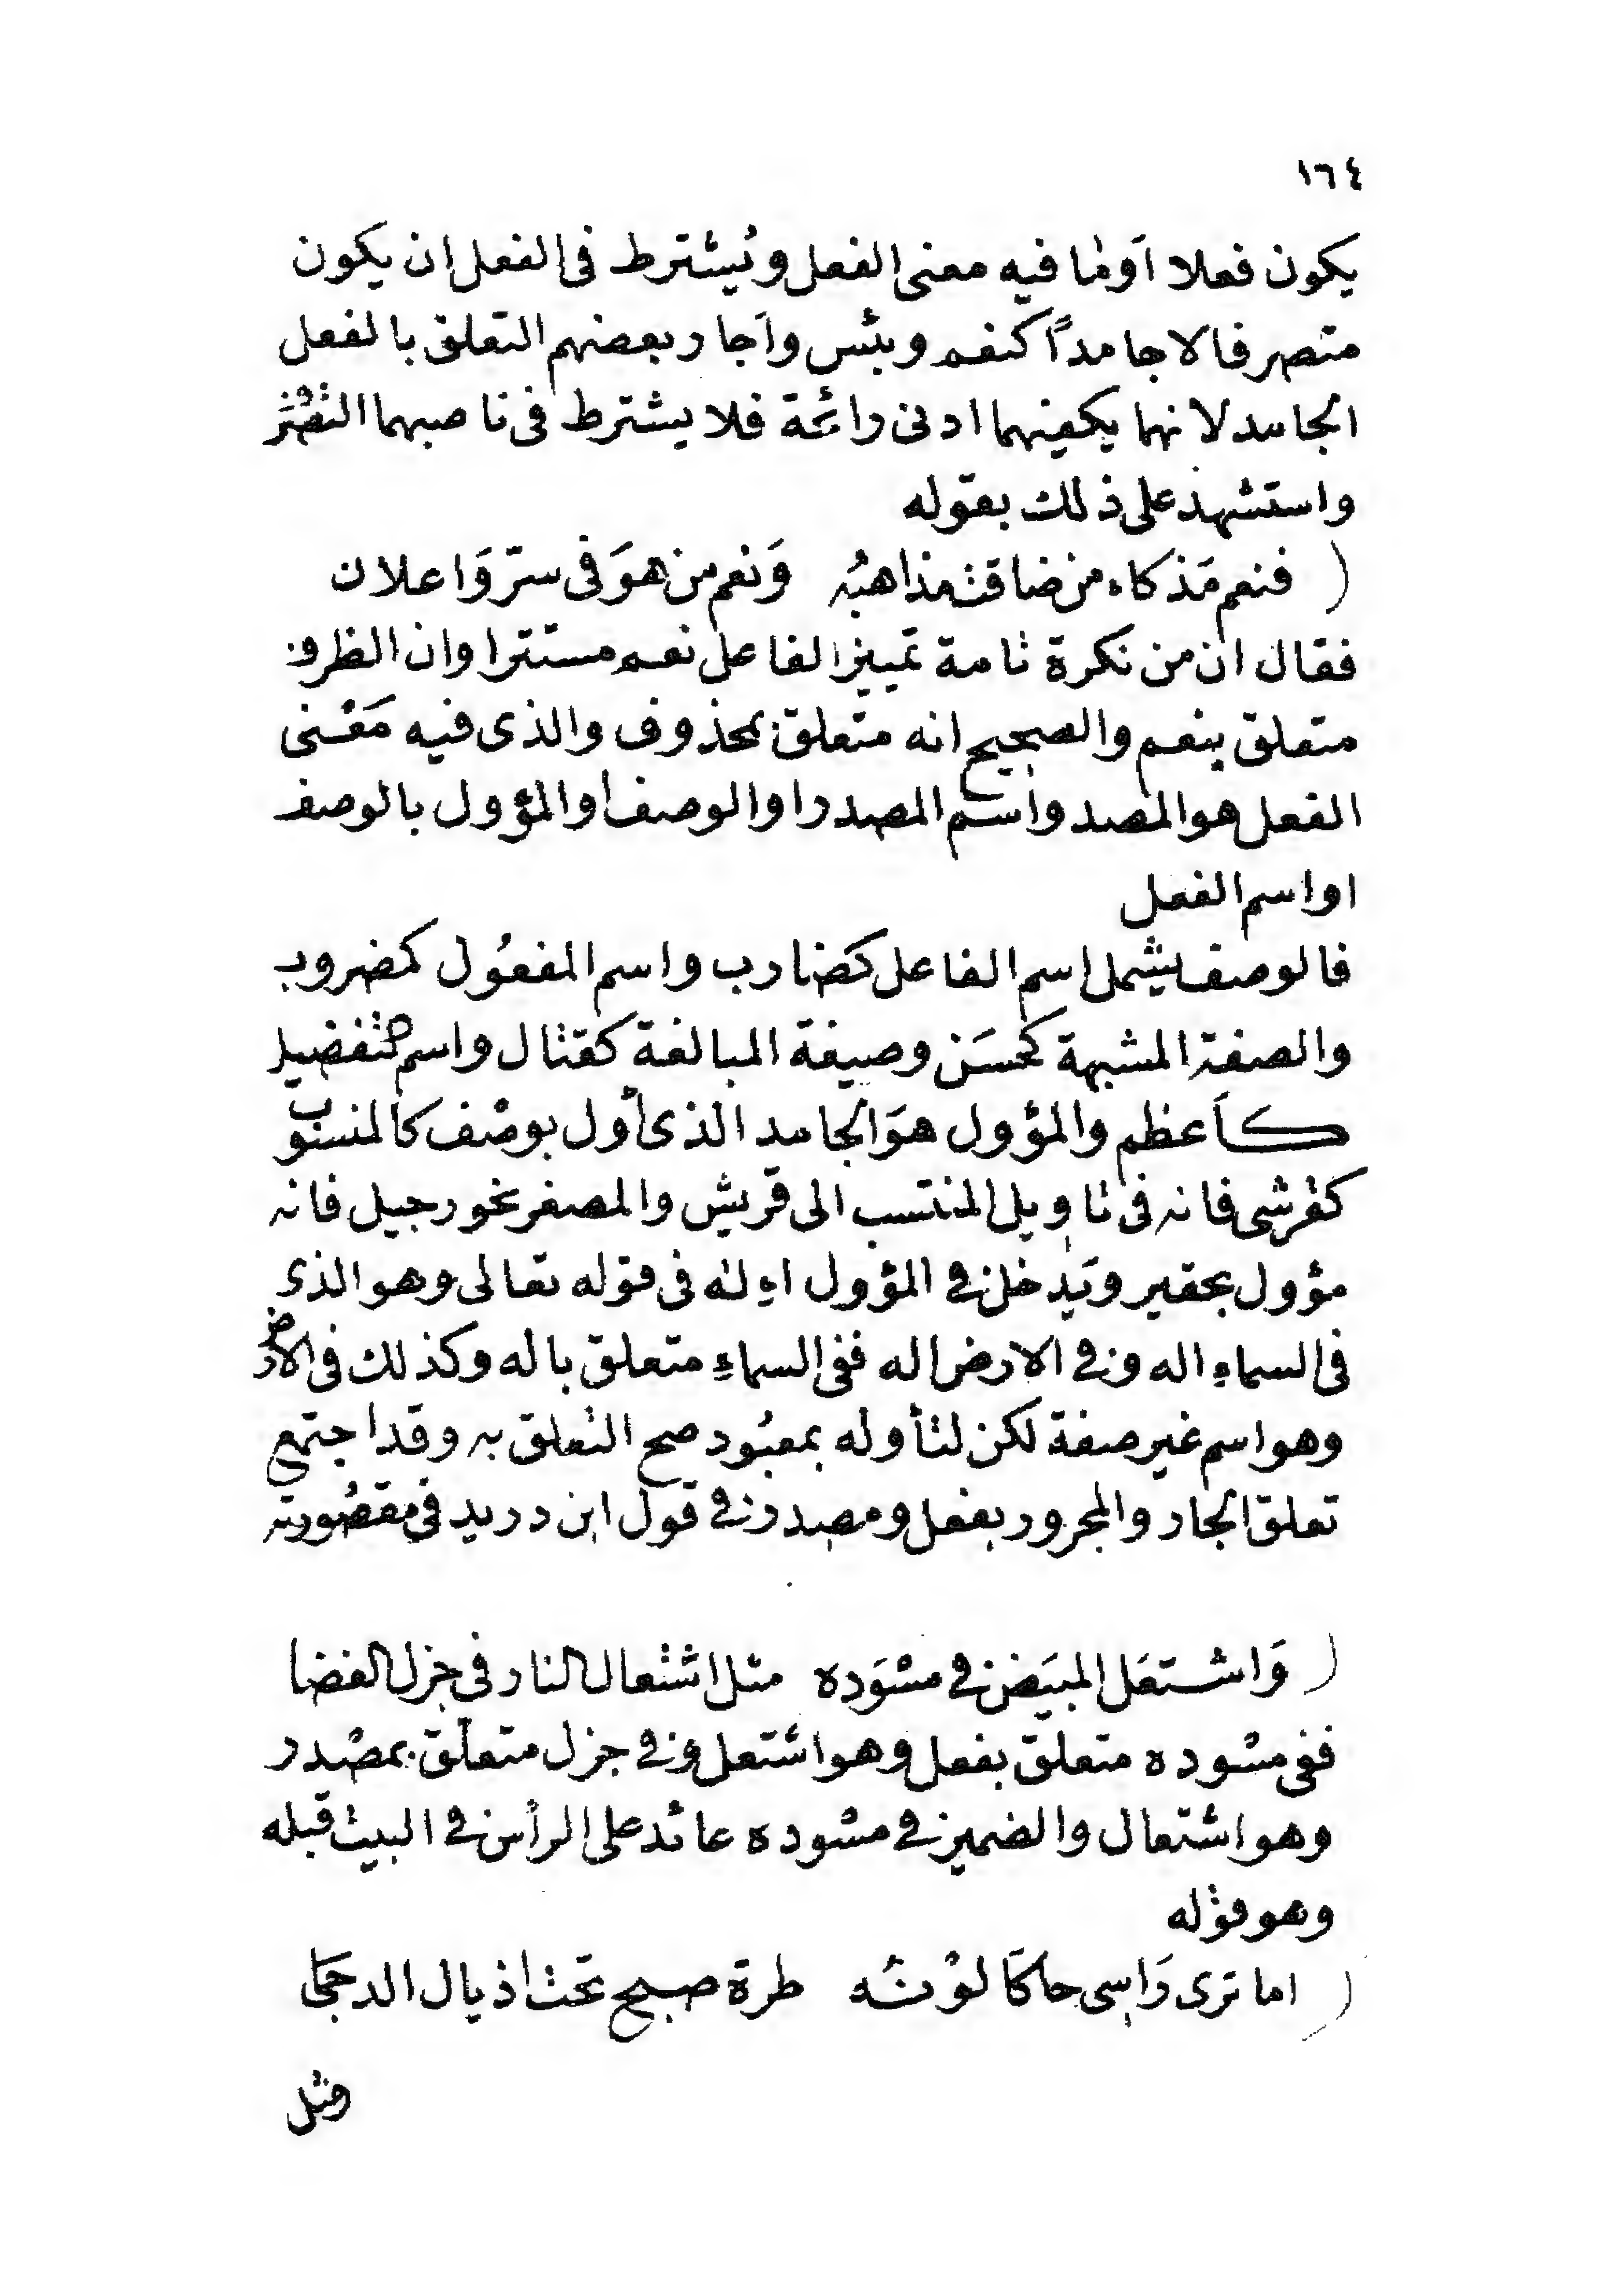 ١٦٤
يكون فعلا اَو مٰا فيه معنى الفعل ويُشترط فى الفعل ان يكون
متصرفا لا جامداً كنعم وبئس واَجاز بعضهم التعلق بالفعل
الجامد لانهما يكفيهما ادنى رائحة فلا يشترط فى ناصبهما التصرف
واستشهد على ذلك بقوله
( فنعم مَذكاء من ضاقت مذاهبُه وَنعم من هوَ فى سرّ وَاعلان
فقال ان من نكرة تامة تمييز الفاعل نعم مستترا وان الظرو
متعلق بنعم والصحيح انه متعلق بمحذوف والذى فيه مَعْنى
الفعل هو المصد واسم المصدر او الوصف او المؤول بالوصف
او اسم الفعل
فالوصف يشمل اسم الفاعل كضارب واسم المفعُول كمضروب
والصفة المشبهة كحسَن وصيغة المبالغة كقتال واسم التفضيل
كاَعظم والمؤول هوَ الجامد الذى أول بوصْف كالمنسوب
كقرشى فانه فى تاويل المنتسب الى قريش والمصغر نحو رجيل فانه
مؤول بحقير ويَدخل فى المؤول اله فى قوله تعالى وهو الذى
فى السماءِ اله وفى الارض اله ففى السماءِ متعلق باله وكذلك فى الارض
وهو اسم غير صفة لكن لتأوله بمعبُود صح التعلق به وقد اجتمع
تعلق الجار والمجرور بفعل ومصدر فى قول ابن دريد فى مقصُورته
( وَاشتعَل المبيَض فى مسْوَده مثل اشتعال النار فى جزل الغضا
ففى مسْوده متعلق بفعل وهو اشتعل وفى جزل متعلق بمصْدر
وهو اشتعال والضمير فى مسْوده عائد على الرأس فى البيت قبله
وهو قوْله
( اما ترى رَاسى حاكَا لوْنه طرة صبح تحت اذيال الدجىٰ
ومثل